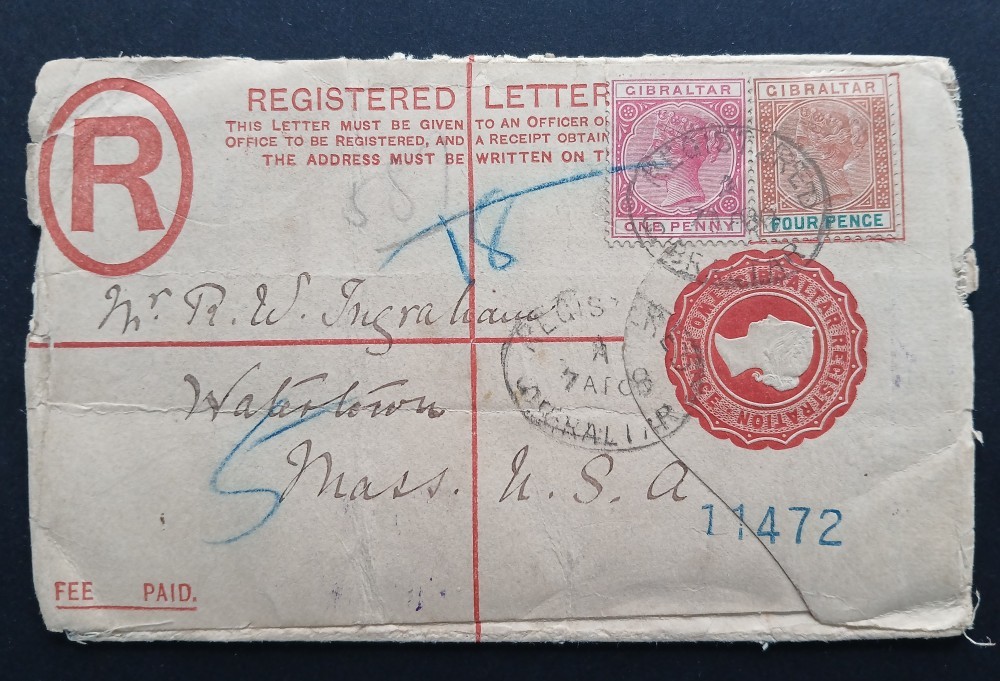 R
REGISTERED LETTER
THIS LETTER MUST BE GIVEN TO AN OFFICER O
OFFICE TO BE REGISTERED, AND A RECEIPT OBTAIN
THE ADDRESS MUST BE WRITTEN ON T
GIBRALTAR
ONE PENNY
GIBRALTAR
FOUR PENCE
REGISTERED
55
18
Mr. R. W. Ingraham
REGIS
A
7 AU 08
GIBRALTAR
GIBRALTAR REGISTRATION
Watertown
5
Mass. U. S. A
11472
FEE PAID.